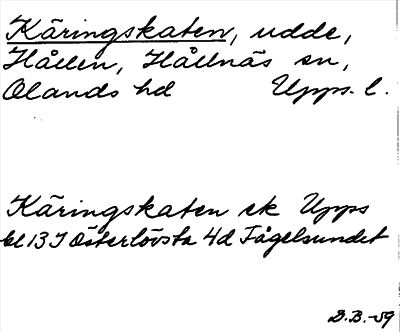 Käringskaten, udde,
Hållen, Hållnäs sn,
Olands hd Upps. l.
Käringskaten ek Upps
bl 13 I Österlövsta 4d Fågelsundet
B.B.-59